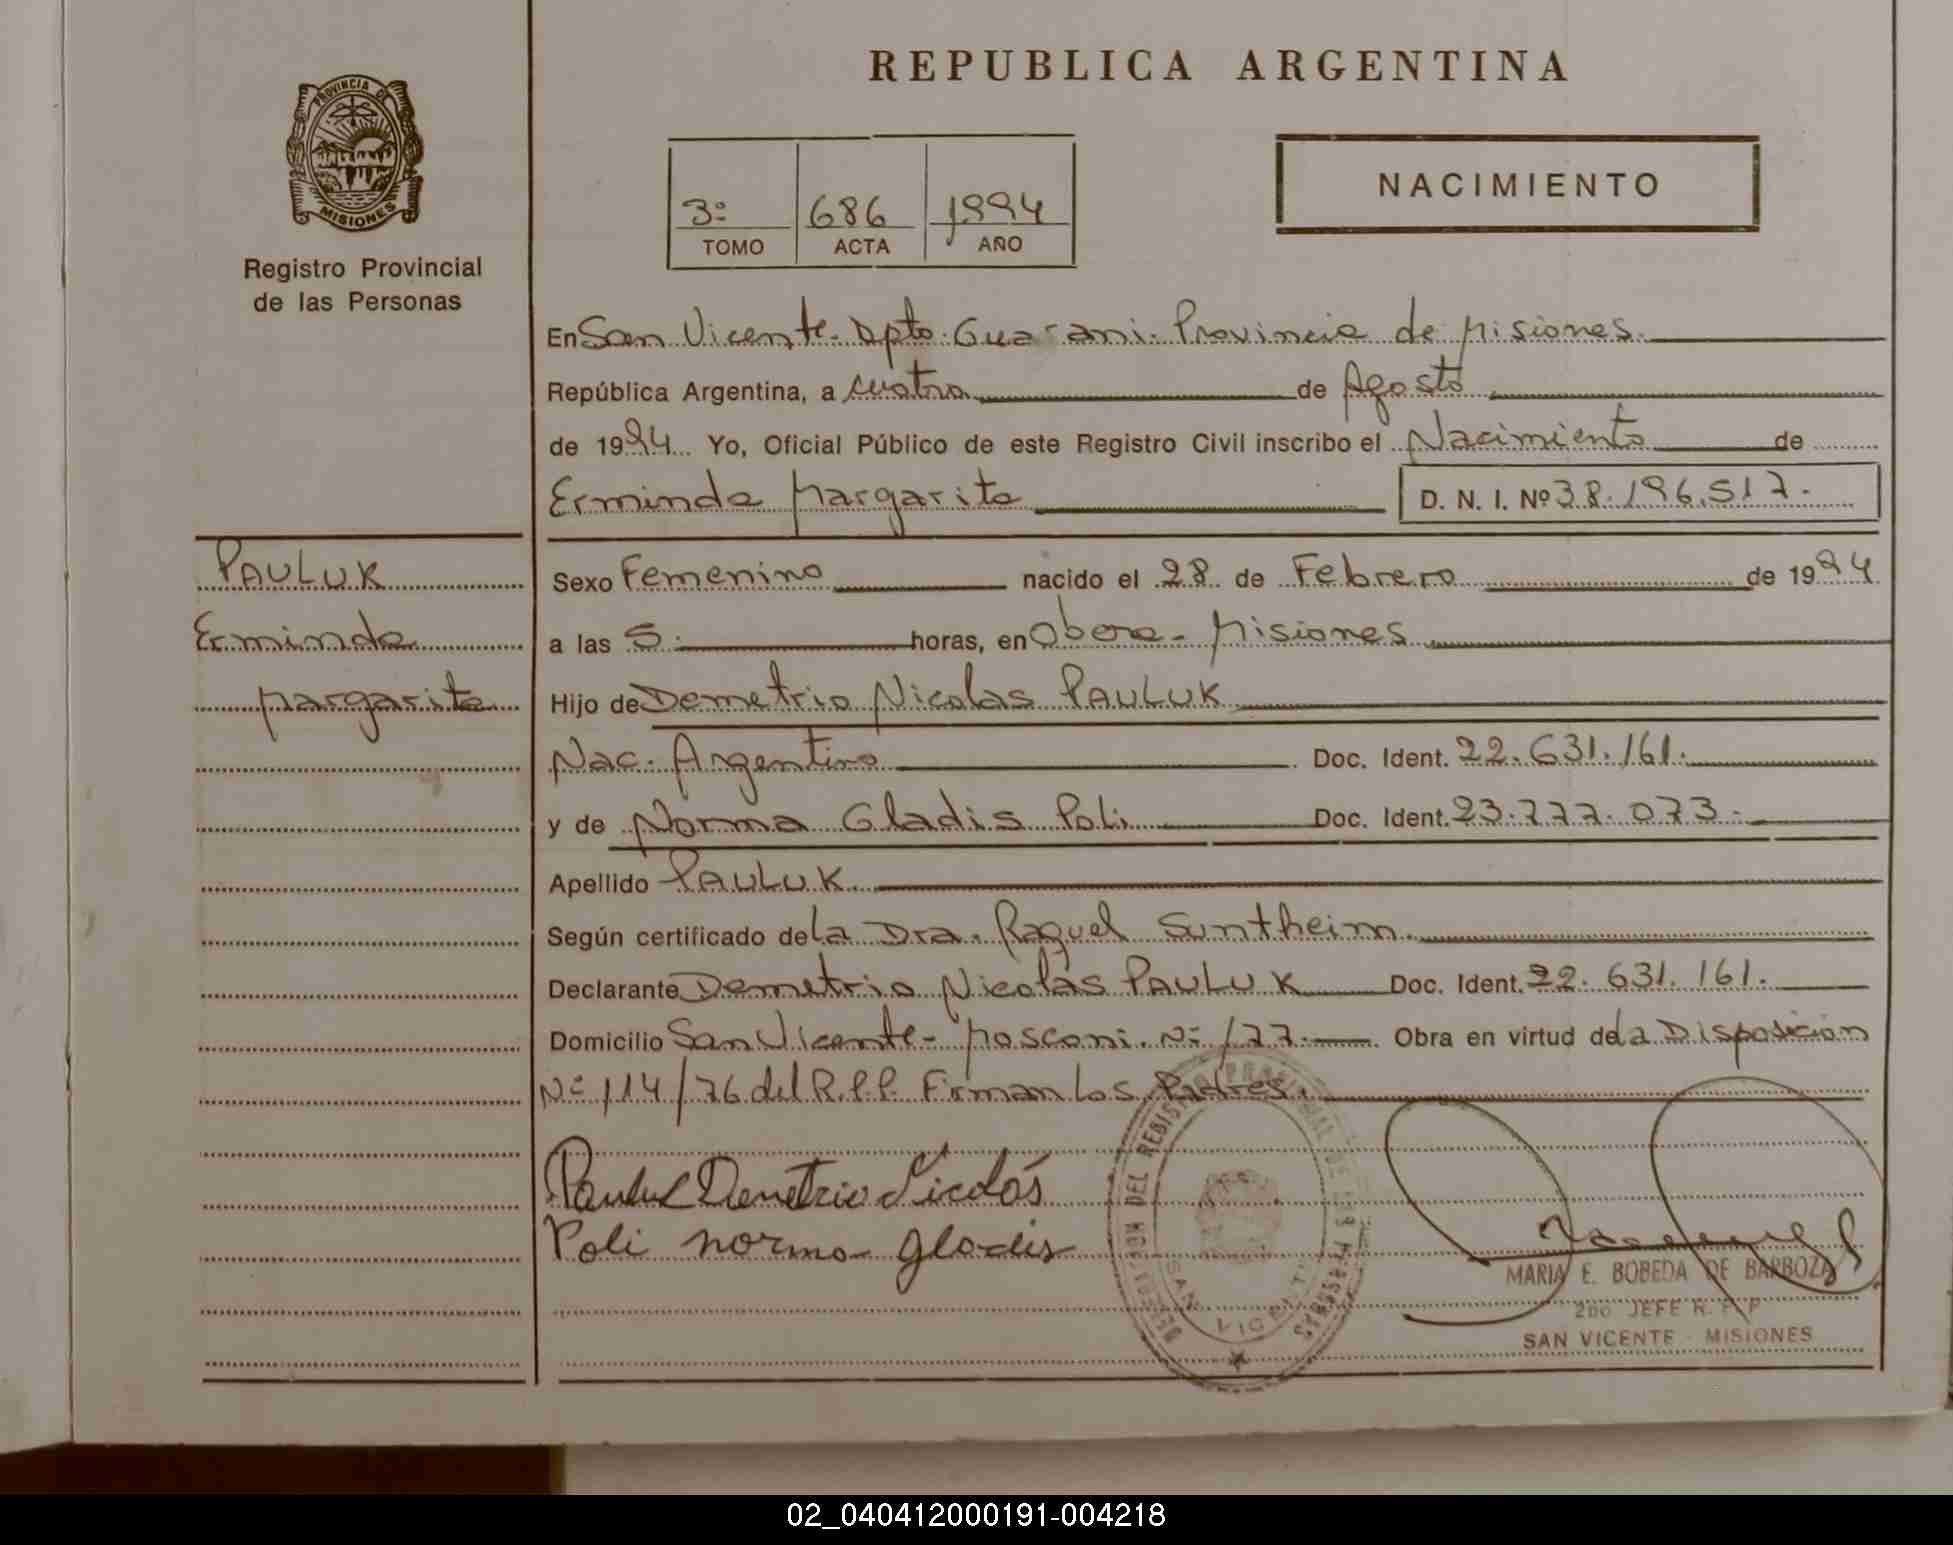 REPUBLICA ARGENTINA
PROVINCIA DE
MISIONES
Registro Provincial
de las Personas
3º 686 1994
TOMO ACTA AÑO
NACIMIENTO
En San Vicente. Dpto. Guarani. Provincia de Misiones.
República Argentina, a cuatro de Agosto
de 1994 Yo, Oficial Público de este Registro Civil inscribo el Nacimiento de
Erminda Margarita D. N. I. Nº 38.196.517.
PAULUK
Erminda
Margarita
Sexo Femenino nacido el 28 de Febrero de 1994
a las 5. horas, en Obera - Misiones
Hijo de Demetrio Nicolas PAULUK
Nac. Argentino Doc. Ident. 22.631.161.
y de Norma Gladis Poli Doc. Ident. 23.777.073.
Apellido PAULUK
Según certificado de La Dra. Raquel Suntheim.
Declarante Demetrio Nicolas PAULUK Doc. Ident. 22.631.161.
Domicilio San Vicente - Mosconi. Nº 177. Obra en virtud de la Disposición
Nº 114/76 del R.P.P. Firman los Padres.
Pauluk Demetrio Nicolás
Poli norma gladis
DEL REGISTRO PROVINCIAL DE LAS PERSONAS
SAN VICENTE
MARIA E. BOBEDA DE BARBOZA
2DO JEFE R. P. P
SAN VICENTE - MISIONES
02_040412000191-004218